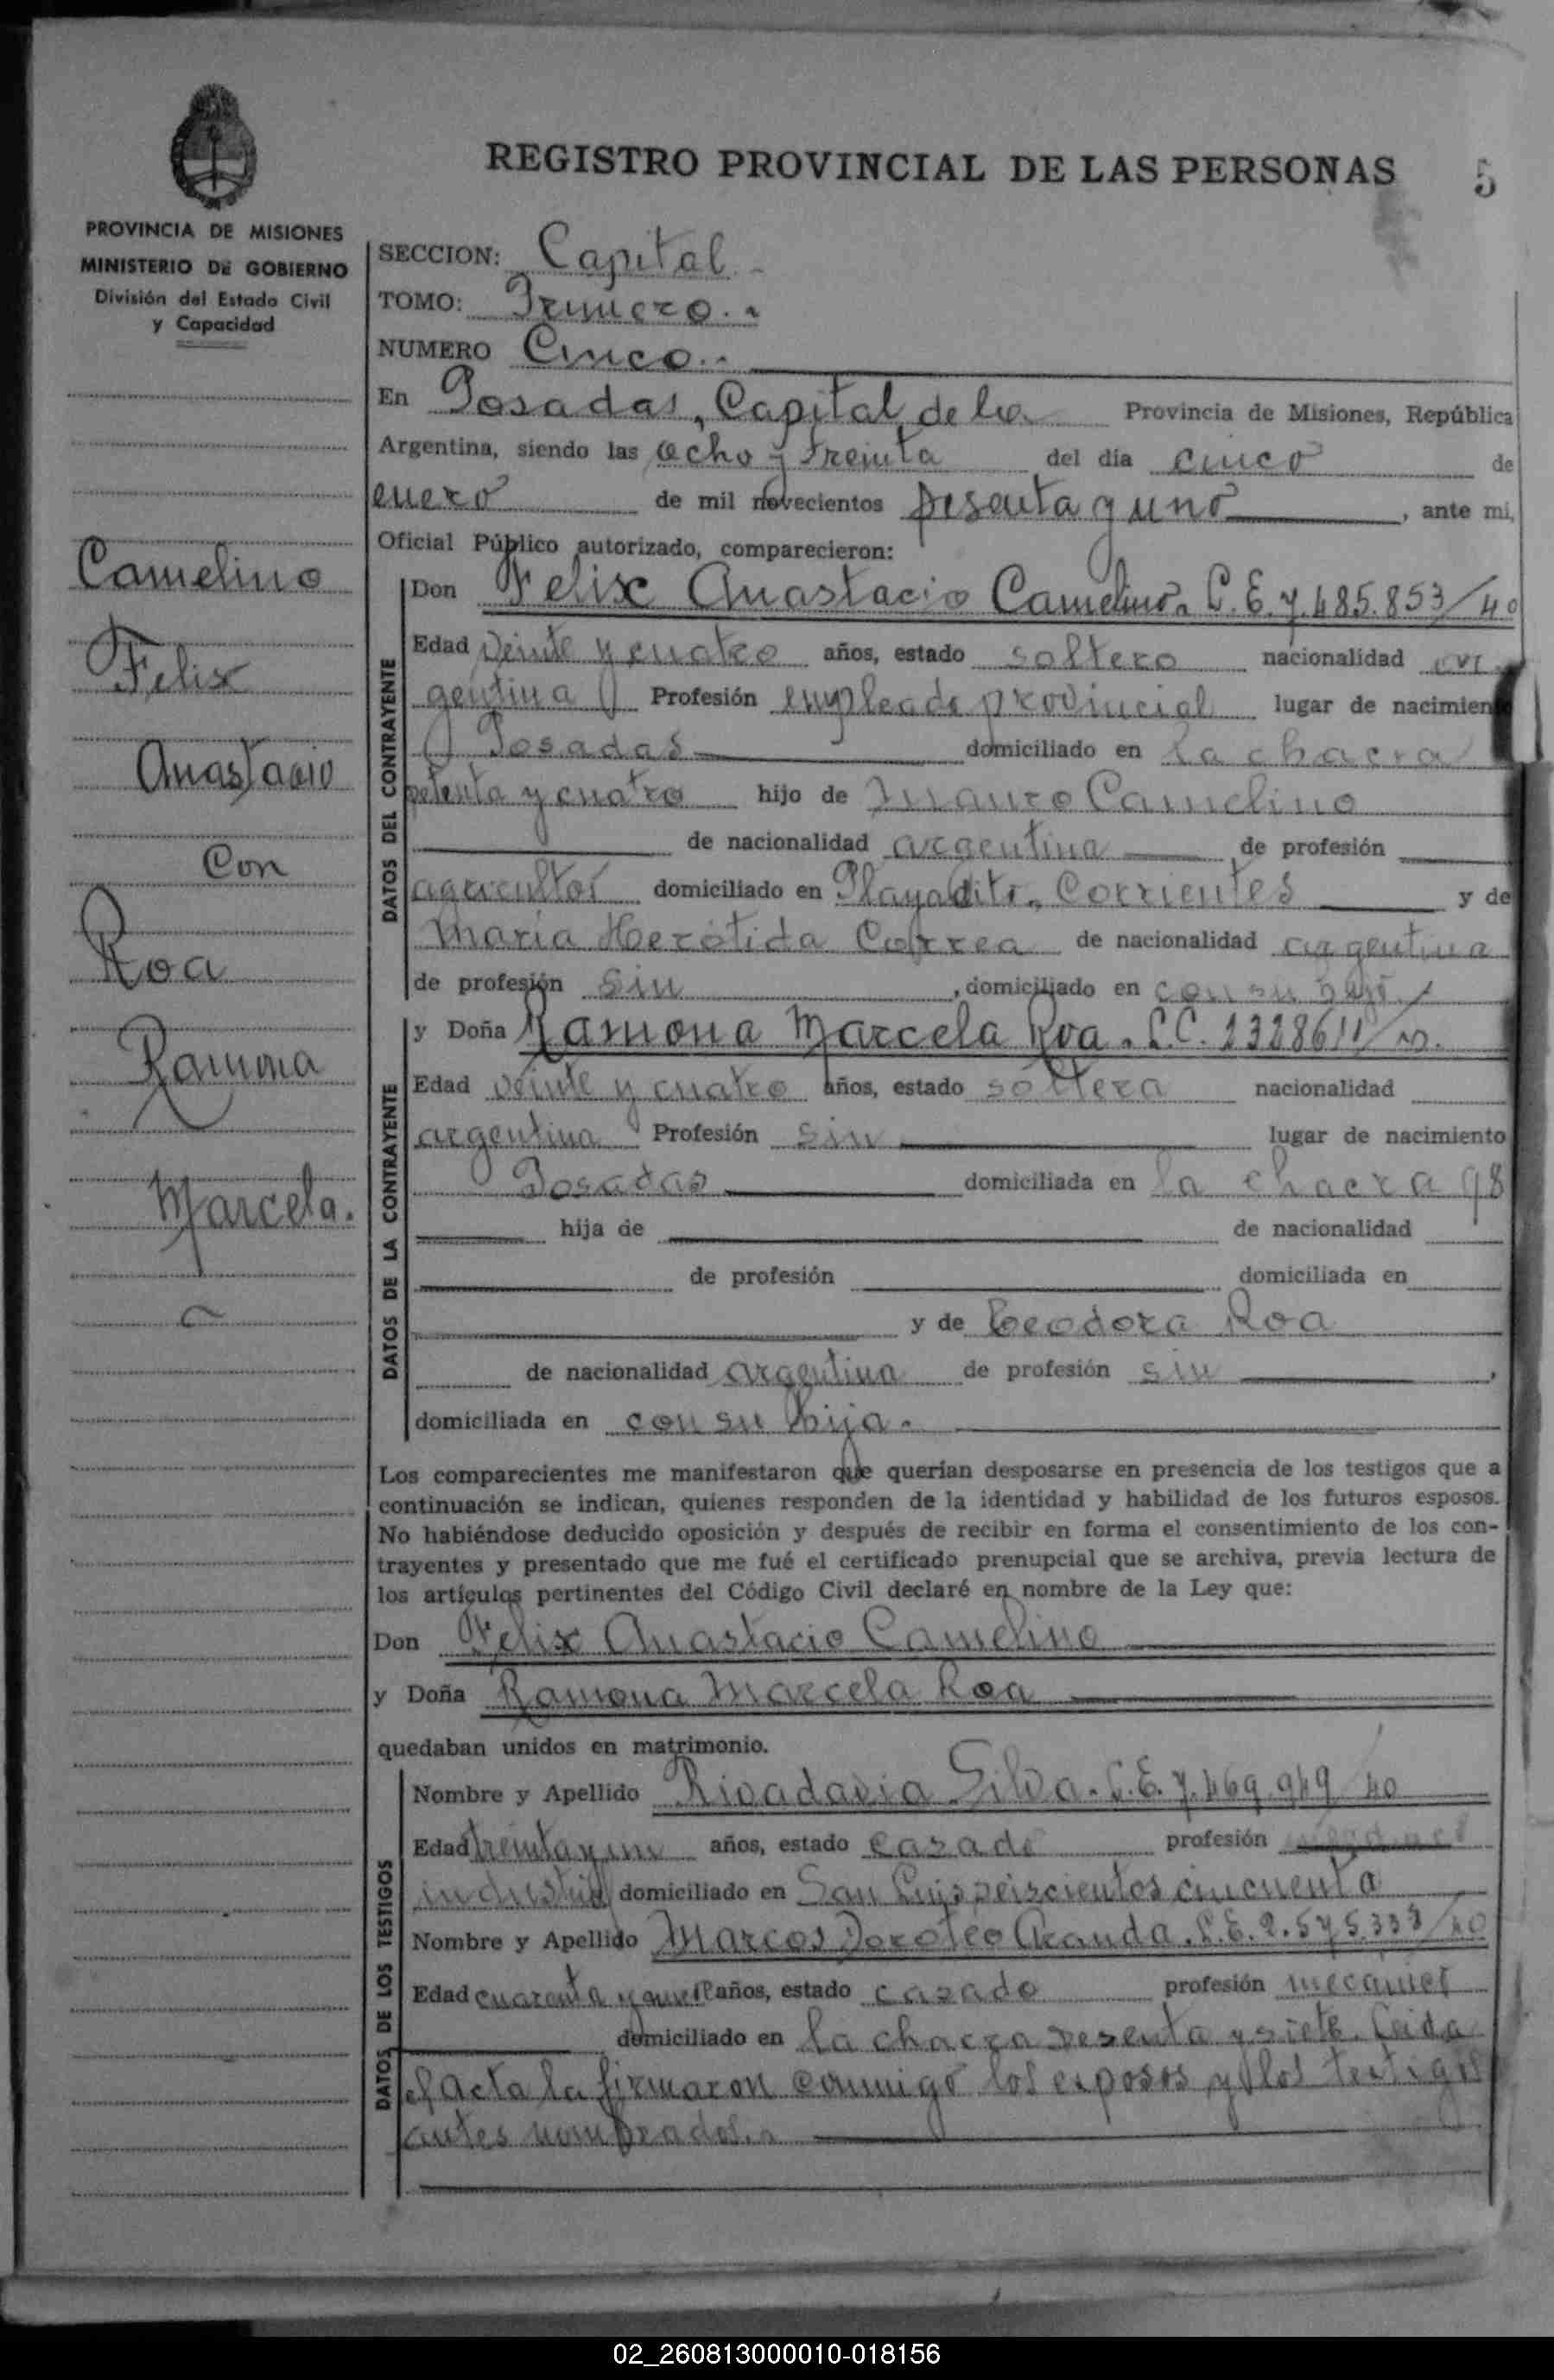 REGISTRO PROVINCIAL DE LAS PERSONAS
5
PROVINCIA DE MISIONES
MINISTERIO DE GOBIERNO
División del Estado Civil
y Capacidad
Camelino
Felix
Anastacio
Con
Roa
Ramona
Marcela.
SECCION: Capital
TOMO: Primero.
NUMERO Cinco..
En Posadas, Capital de la Provincia de Misiones, República
Argentina, siendo las ocho y treinta del día cinco de
enero de mil novecientos sesenta y uno, ante mi,
Oficial Público autorizado, comparecieron:
DATOS DEL CONTRAYENTE
Don Felix Anastacio Camelino. L.E. 7.485.853/40
Edad veinte y cuatro años, estado soltero nacionalidad ar
gentina Profesión empleado provincial lugar de nacimien
Posadas domiciliado en la chacra
setenta y cuatro hijo de Mauro Camelino
de nacionalidad argentina de profesión
agricultor domiciliado en Playadito, Corrientes y de
María Herótida Correa de nacionalidad argentina
de profesión sin, domiciliado en con su hijo./
DATOS DE LA CONTRAYENTE
y Doña Ramona Marcela Roa. L.C.
Edad veinte y cuatro años, estado soltera nacionalidad
argentina Profesión sin lugar de nacimiento
Posadas domiciliada en la chacra 98
hija de de nacionalidad
de profesión domiciliada en
y de Teodora Roa
de nacionalidad argentina de profesión sin,
domiciliada en con su hija.
Los comparecientes me manifestaron que querían desposarse en presencia de los testigos que a
continuación se indican, quienes responden de la identidad y habilidad de los futuros esposos.
No habiéndose deducido oposición y después de recibir en forma el consentimiento de los con-
trayentes y presentado que me fué el certificado prenupcial que se archiva, previa lectura de
los artículos pertinentes del Código Civil declaré en nombre de la Ley que:
Don Felix Anastacio Camelino
y Doña Ramona Marcela Roa
quedaban unidos en matrimonio.
DATOS DE LOS TESTIGOS
Nombre y Apellido Rivadavia Silva. L.E. 7.469.949/40
Edad treinta y un años, estado casado profesión
industrial domiciliado en San Luis seiscientos cincuenta
Nombre y Apellido Marcos Doroteo Aranda. L.E. 2.575.333/40
Edad cuarenta y años, estado casado profesión mecánico
domiciliado en la chacra sesenta y siete. Leida
el acta la firmaron conmigo los esposos y los testigos
antes nombrados.
02_260813000010-018156